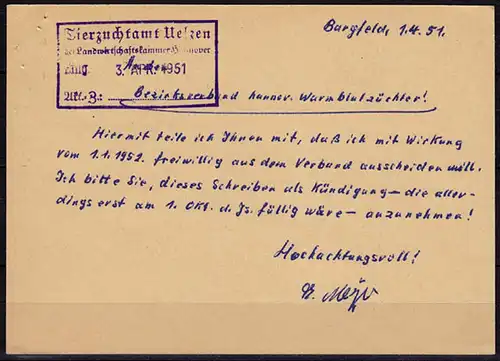 Bargfeld, 1.4.51.
Tierzuchtamt Uelzen
der Landwirtschaftskammer Hannover
Eing. 3. APR. 1951
Akt. Z.:
An den
Bezirksverband hannov. Warmblutzüchter!
Hiermit teile ich Ihnen mit, daß ich mit Wirkung
vom 1.1.1952. freiwillig aus dem Verband ausscheiden will.
Ich bitte Sie, dieses Schreiben als Kündigung – die aller-
dings erst am 1. Okt. d. Js. fällig wäre – anzunehmen!
Hochachtungsvoll!